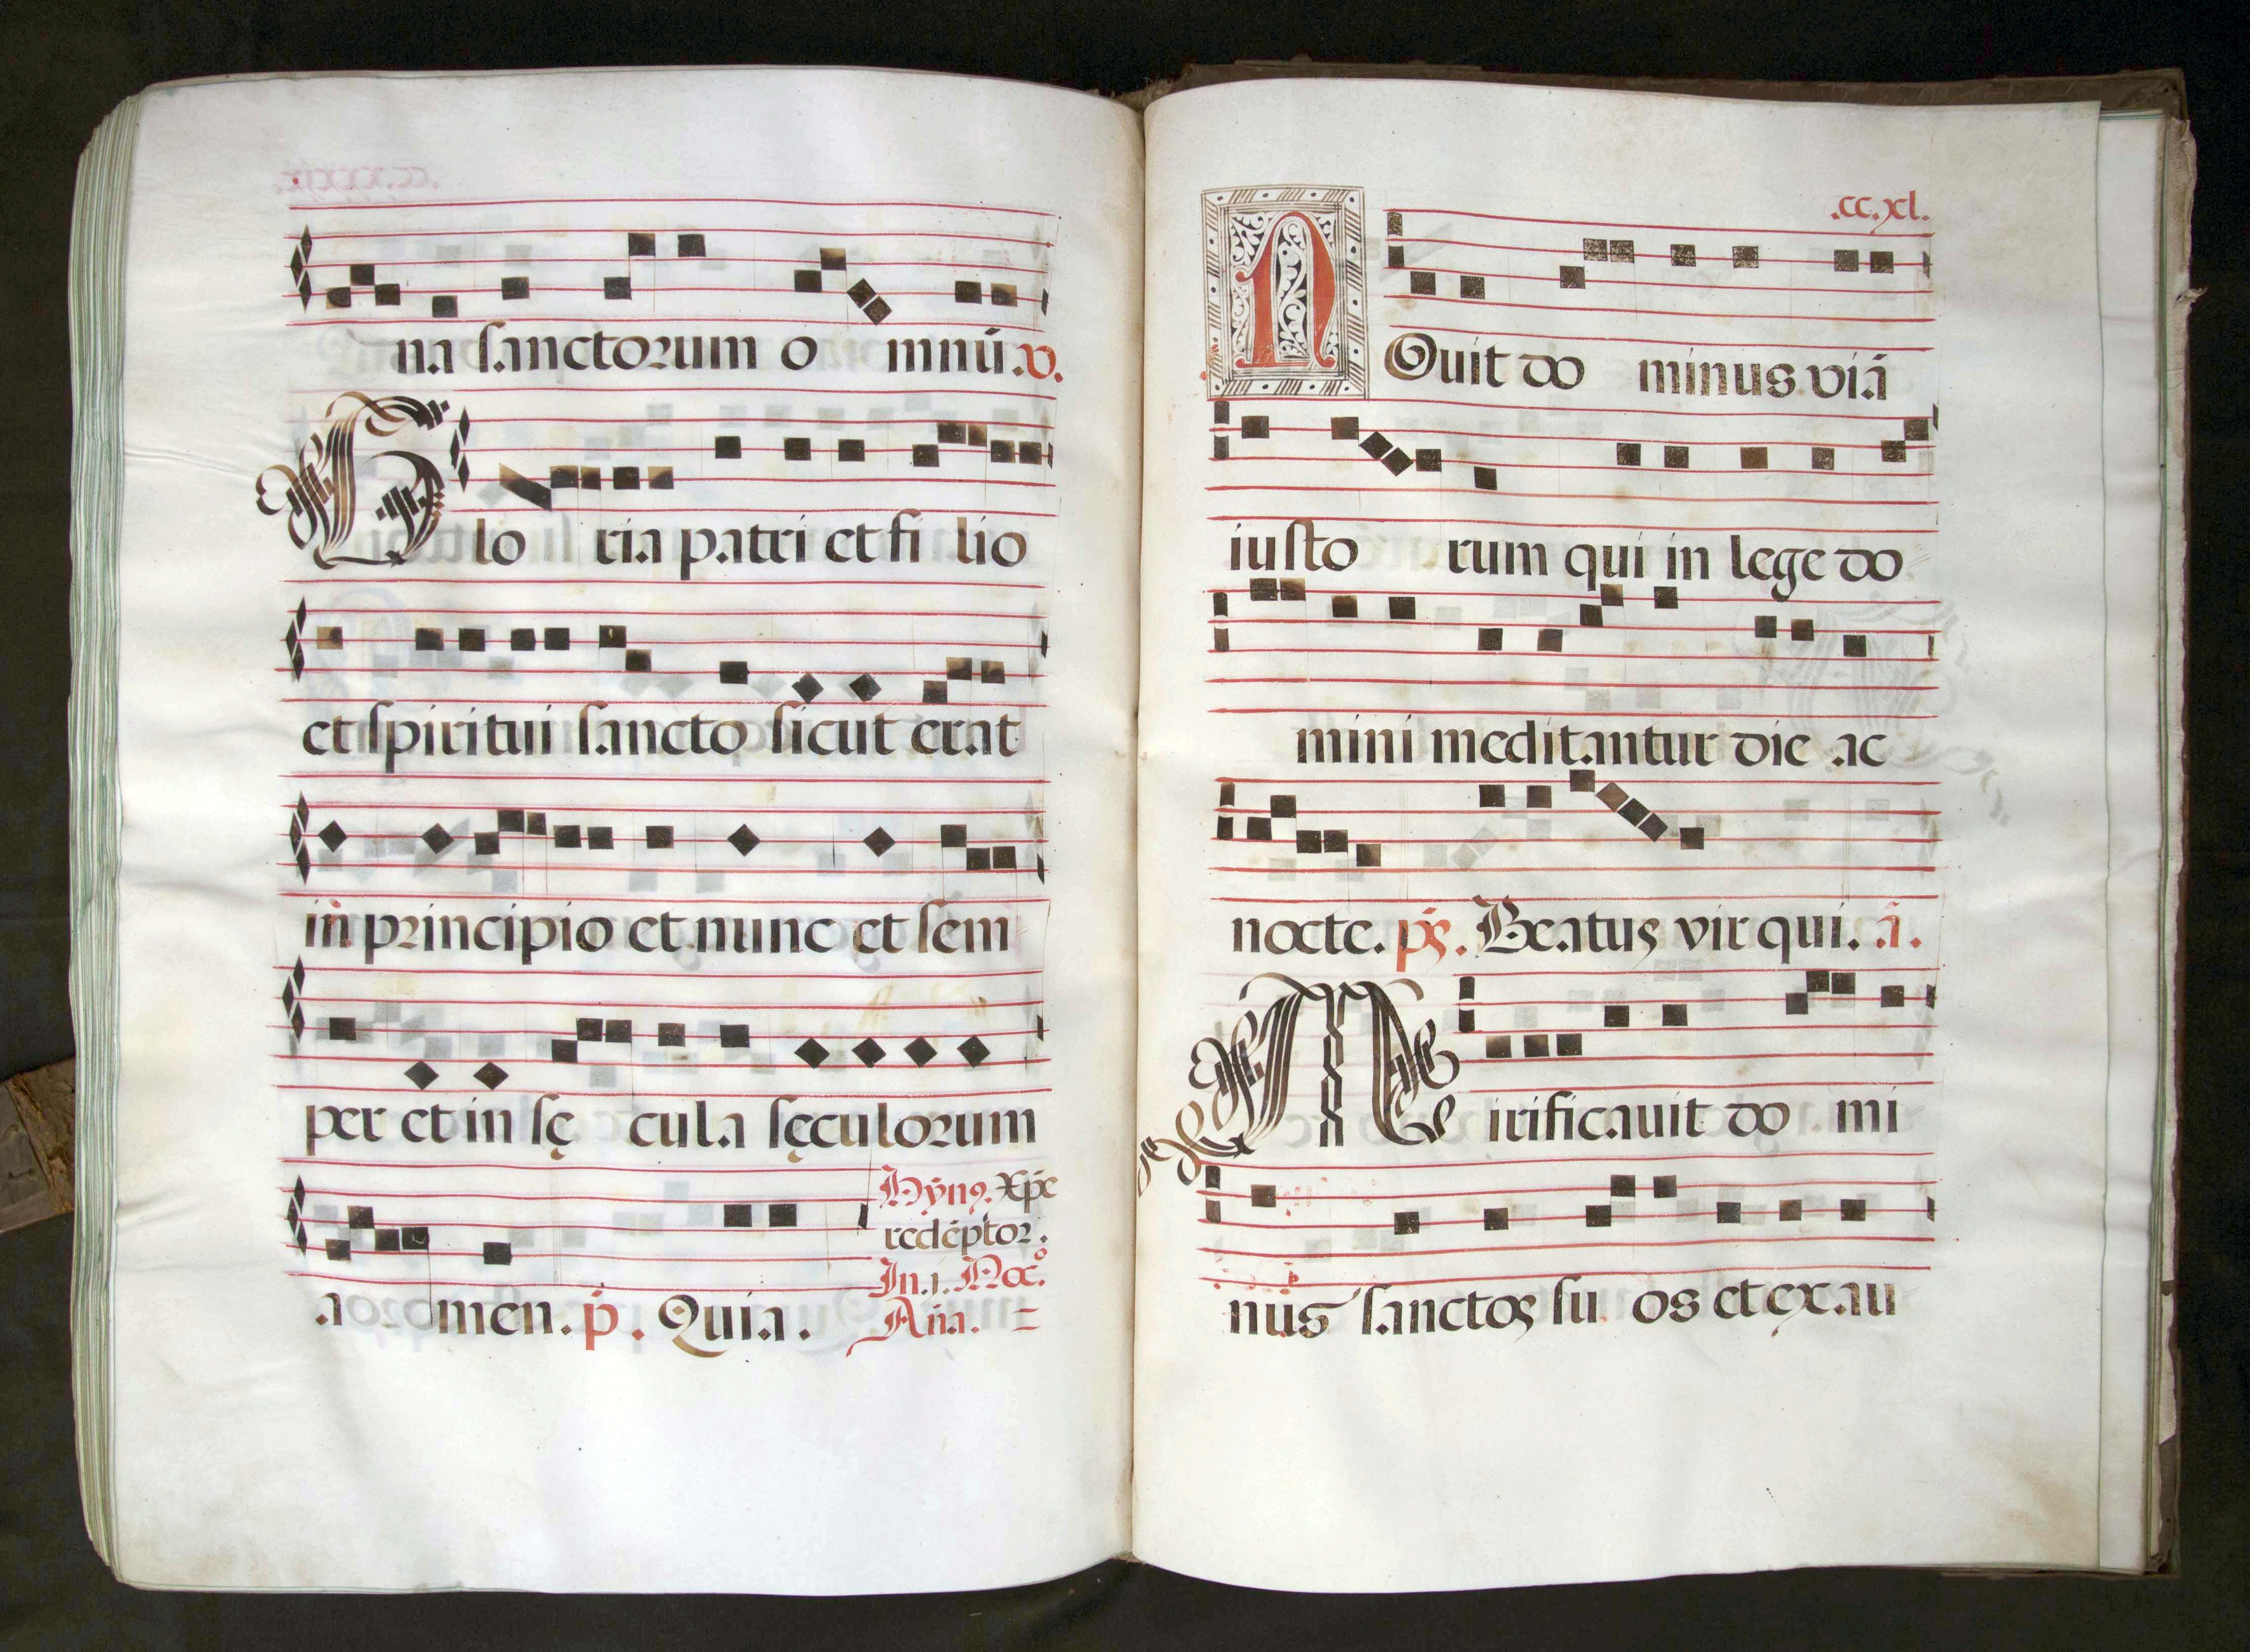 na sanctorum o mniū. v.
Glo ria patri et fi lio
et spiritui sancto sicut erat
in principio et nunc et sem
per et in sę cula sęculorum
Hyn9. Xp̄e
redēptor.
a men. p̄. Quia.
In .i. Noc.º
Aña. =
.cc.xl.
NOuit do minus viā
iusto rum qui in lege do
mini meditantur die ac
nocte. ps. Beatus vir qui. ā.
Mirificauit do mi
nus sanctos su os et exau